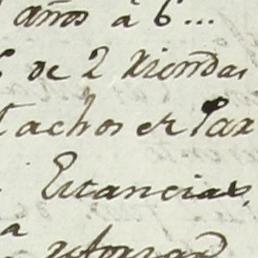 años à 6...
de 2 Riendas
tachos en Pax
Estancias,
a